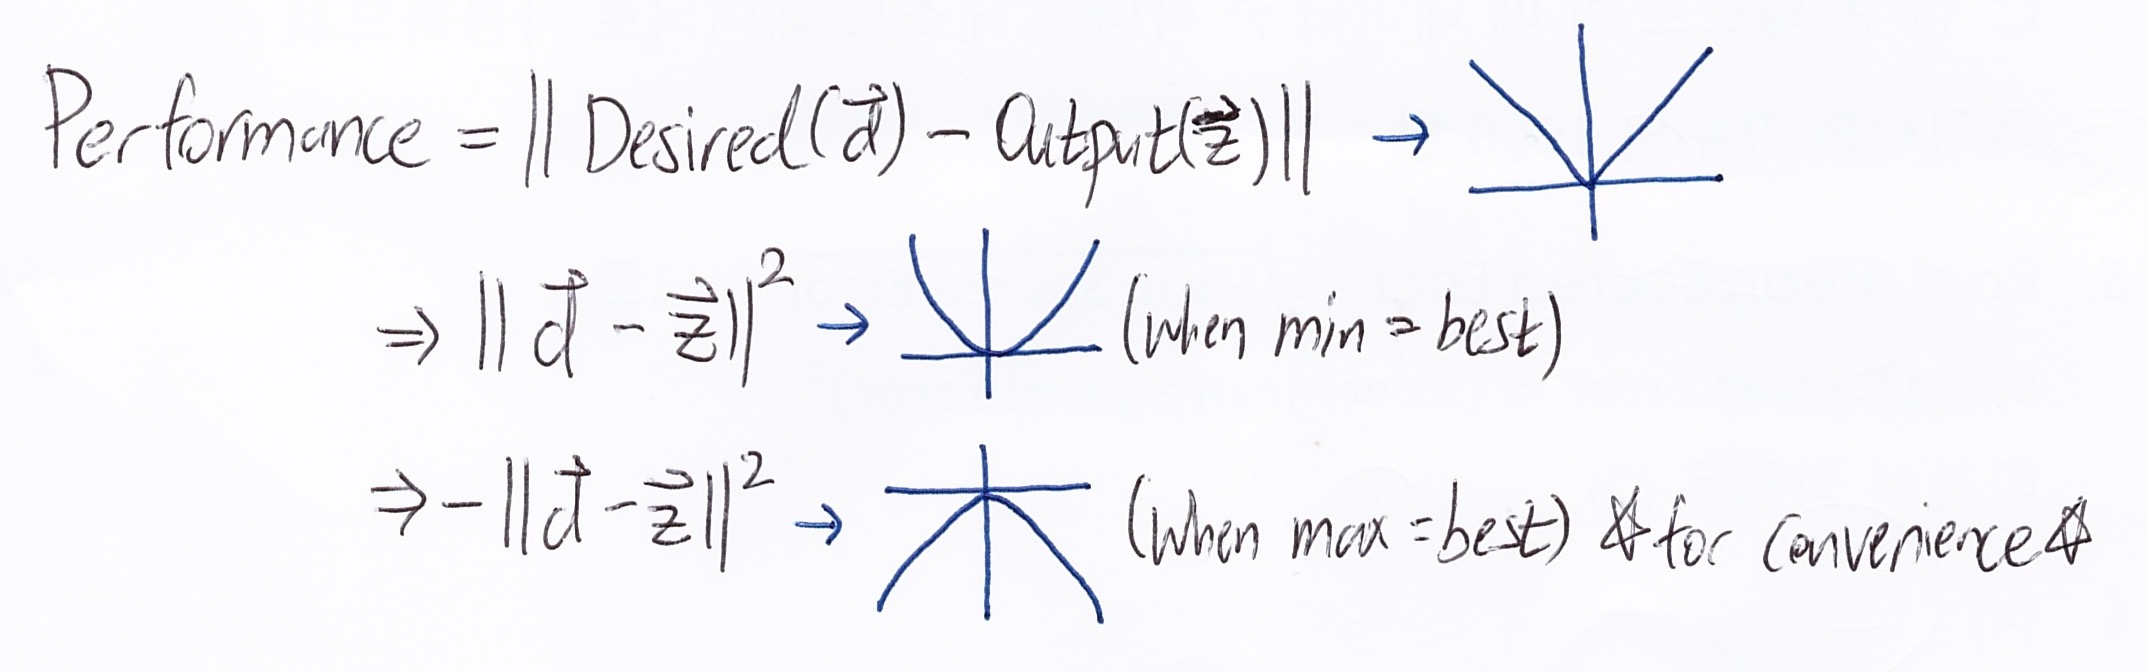 Performance = || Desired(d⃗) - Output(z⃗) || →
⇒ || d⃗ - z⃗ ||² → (when min = best)
⇒ - || d⃗ - z⃗ ||² → (when max = best) ☆ for convenience ☆